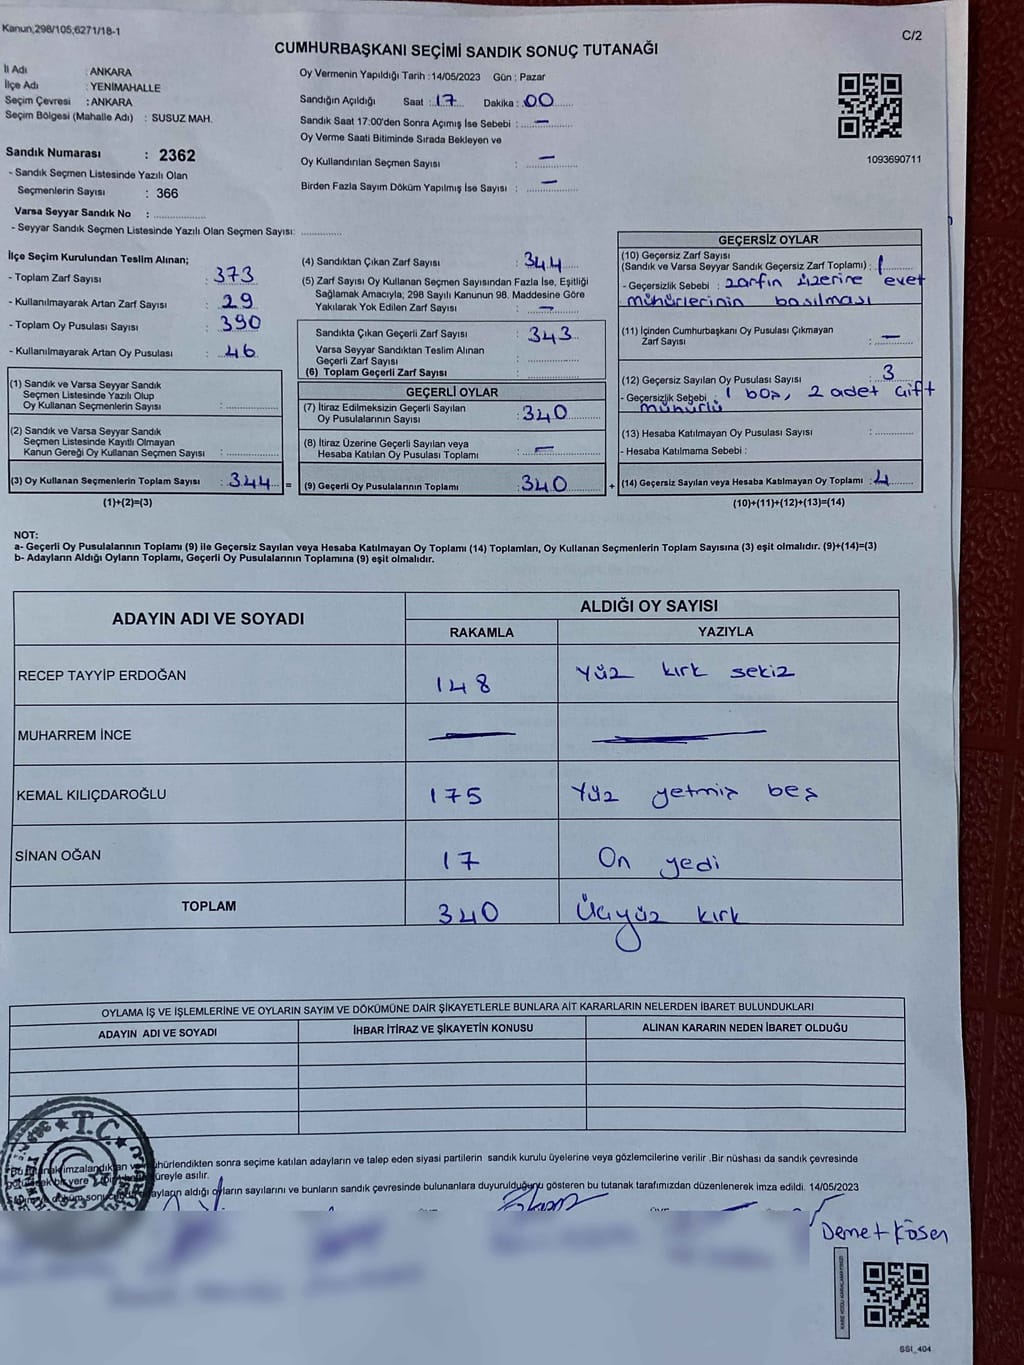 Kanun,298/105;6271/18-1
C/2
CUMHURBAŞKANI SEÇİMİ SANDIK SONUÇ TUTANAĞI
İl Adı : ANKARA
İlçe Adı : YENİMAHALLE
Seçim Çevresi : ANKARA
Seçim Bölgesi (Mahalle Adı) : SUSUZ MAH.
Sandık Numarası : 2362
- Sandık Seçmen Listesinde Yazılı Olan
Seçmenlerin Sayısı : 366
Varsa Seyyar Sandık No : ..............
- Seyyar Sandık Seçmen Listesinde Yazılı Olan Seçmen Sayısı: ..............
Oy Vermenin Yapıldığı Tarih :14/05/2023 Gün : Pazar
Sandığın Açıldığı Saat : 17 Dakika : 00
Sandık Saat 17:00'den Sonra Açımış İse Sebebi : —
Oy Verme Saati Bitiminde Sırada Bekleyen ve
Oy Kullandırılan Seçmen Sayısı : —
Birden Fazla Sayım Döküm Yapılmış İse Sayısı : —
1093690711
İlçe Seçim Kurulundan Teslim Alınan;
- Toplam Zarf Sayısı : 373
- Kullanılmayarak Artan Zarf Sayısı : 29
- Toplam Oy Pusulası Sayısı : 390
- Kullanılmayarak Artan Oy Pusulası : 46
(1) Sandık ve Varsa Seyyar Sandık
Seçmen Listesinde Yazılı Olup
Oy Kullanan Seçmenlerin Sayısı : ..............
(2) Sandık ve Varsa Seyyar Sandık
Seçmen Listesinde Kayıtlı Olmayan
Kanun Gereği Oy Kullanan Seçmen Sayısı : ..............
(3) Oy Kullanan Seçmenlerin Toplam Sayısı : 344 =
(1)+(2)=(3)
(4) Sandıktan Çıkan Zarf Sayısı : 344
(5) Zarf Sayısı Oy Kullanan Seçmen Sayısından Fazla İse, Eşitliği
Sağlamak Amacıyla; 298 Sayılı Kanunun 98. Maddesine Göre
Yakılarak Yok Edilen Zarf Sayısı : —
Sandıkta Çıkan Geçerli Zarf Sayısı : 343
Varsa Seyyar Sandıktan Teslim Alınan
Geçerli Zarf Sayısı : ..............
(6) Toplam Geçerli Zarf Sayısı : ..............
GEÇERLİ OYLAR
(7) İtiraz Edilmeksizin Geçerli Sayılan
Oy Pusulasının Sayısı : 340
(8) İtiraz Üzerine Geçerli Sayılan veya
Hesaba Katılan Oy Pusulası Toplamı : —
(9) Geçerli Oy Pusulalarının Toplamı : 340 +
GEÇERSİZ OYLAR
(10) Geçersiz Zarf Sayısı
(Sandık ve Varsa Seyyar Sandık Geçersiz Zarf Toplamı) : 1
- Geçersizlik Sebebi : zarfın üzerine evet
mühürlerinin basılması
(11) İçinden Cumhurbaşkanı Oy Pusulası Çıkmayan
Zarf Sayısı : —
(12) Geçersiz Sayılan Oy Pusulası Sayısı : 3
- Geçersizlik Sebebi : 1 boş, 2 adet çift
mühürlü
(13) Hesaba Katılmayan Oy Pusulası Sayısı : ..............
- Hesaba Katılmama Sebebi :
(14) Geçersiz Sayılan veya Hesaba Katılmayan Oy Toplamı : 4
(10)+(11)+(12)+(13)=(14)
NOT:
a- Geçerli Oy Pusulalarının Toplamı (9) ile Geçersiz Sayılan veya Hesaba Katılmayan Oy Toplamı (14) Toplamları, Oy Kullanan Seçmenlerin Toplam Sayısına (3) eşit olmalıdır. (9)+(14)=(3)
b- Adayların Aldığı Oyların Toplamı, Geçerli Oy Pusulalarının Toplamına (9) eşit olmalıdır.
ADAYIN ADI VE SOYADI
ALDIĞI OY SAYISI
RAKAMLA YAZIYLA
RECEP TAYYİP ERDOĞAN 148 Yüz kırk sekiz
MUHARREM İNCE — —
KEMAL KILIÇDAROĞLU 175 Yüz yetmiş beş
SİNAN OĞAN 17 On yedi
TOPLAM 340 Üçyüz kırk
OYLAMA İŞ VE İŞLEMLERİNE VE OYLARIN SAYIM VE DÖKÜMÜNE DAİR ŞİKAYETLERLE BUNLARA AİT KARARLARIN NELERDEN İBARET BULUNDUKLARI
ADAYIN ADI VE SOYADI İHBAR İTİRAZ VE ŞİKAYETİN KONUSU ALINAN KARARIN NEDEN İBARET OLDUĞU
T.C.
mühürlendikten sonra seçime katılan adayların ve talep eden siyasi partilerin sandık kurulu üyelerine veya gözlemcilerine verilir .Bir nüshası da sandık çevresinde
süreyle asılır.
adayların aldığı oyların sayılarını ve bunların sandık çevresinde bulunanlara duyurulduğunu gösteren bu tutanak tarafımızdan düzenlenerek imza edildi. 14/05/2023
Demet Kösen
SSI_404